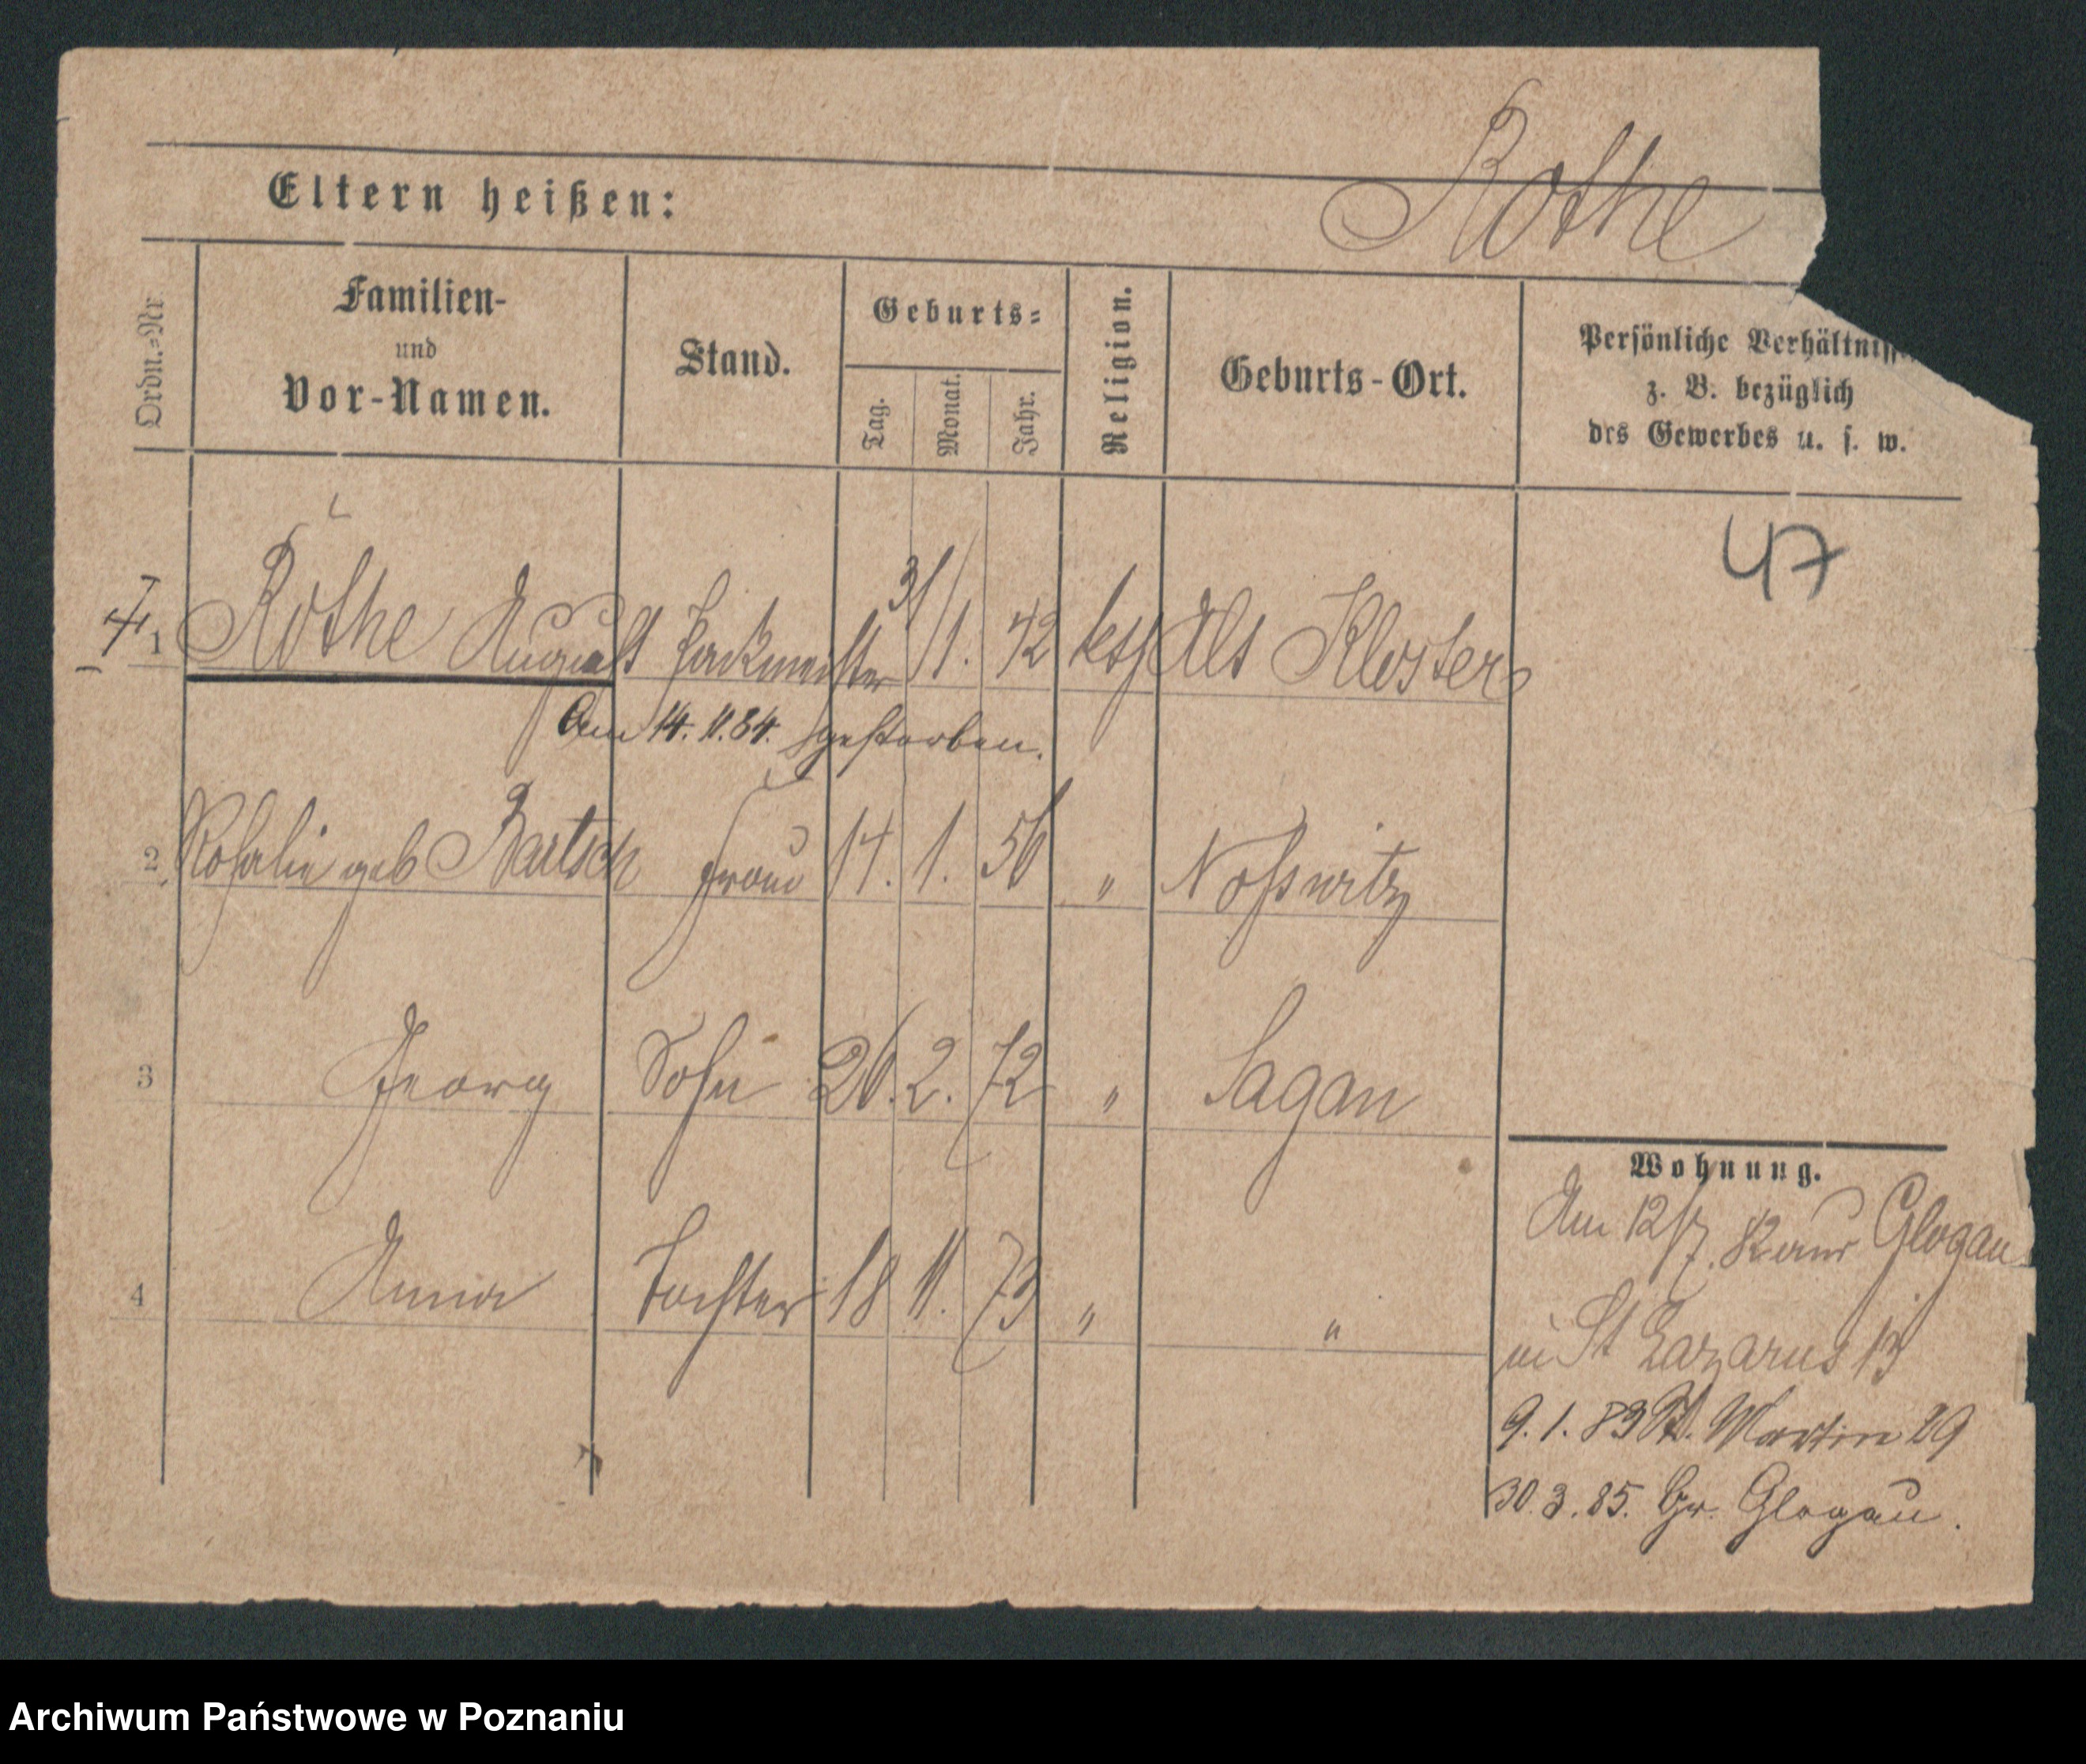 Rothe
Eltern heißen:
Ordn.=Nr.
Familien-
und
Vor-Namen.
Stand.
Geburts=
Tag.
Monat.
Jahr.
Religion.
Geburts-Ort.
Persönliche Verhältniss
z. B. bezüglich
des Gewerbes u. s. w.
47
1 Röthe August Packmeister 31/1. 42 Alt Kloster
Am 14. 11. 84. gestorben.
2 Rosalie geb Bartsch Frau 14. 1. 56 " Noßwitz
3 Georg Sohn 26. 2. 72 " Sagan
4 Anna Tochter 18 11. 73 " "
Wohnung.
Am 12/7. 82 aus Glogau
in St Lazarus 13
9. 1. 83 St. Martin 29
30. 3. 85. Gr. Glogau.
Archiwum Państwowe w Poznaniu